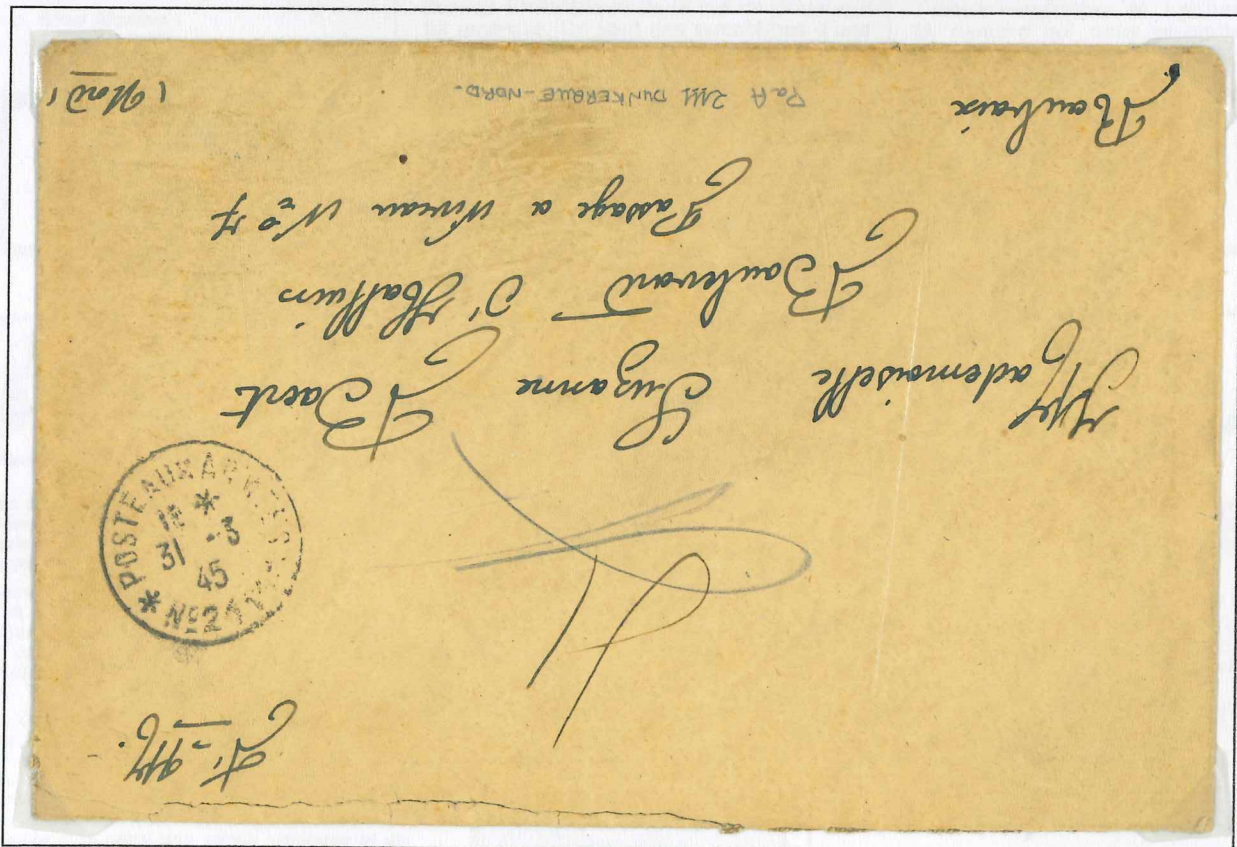 F. M.
* POSTE AUX ARMEES *
18 *
31 -3
45
Nº
Mademoiselle Suzanne Baert
Boulevard d'Halluin
Passage a Niveau Nº 7
Roubaix
(Nord)
PaA 2111 DUNKERQUE-NORD-